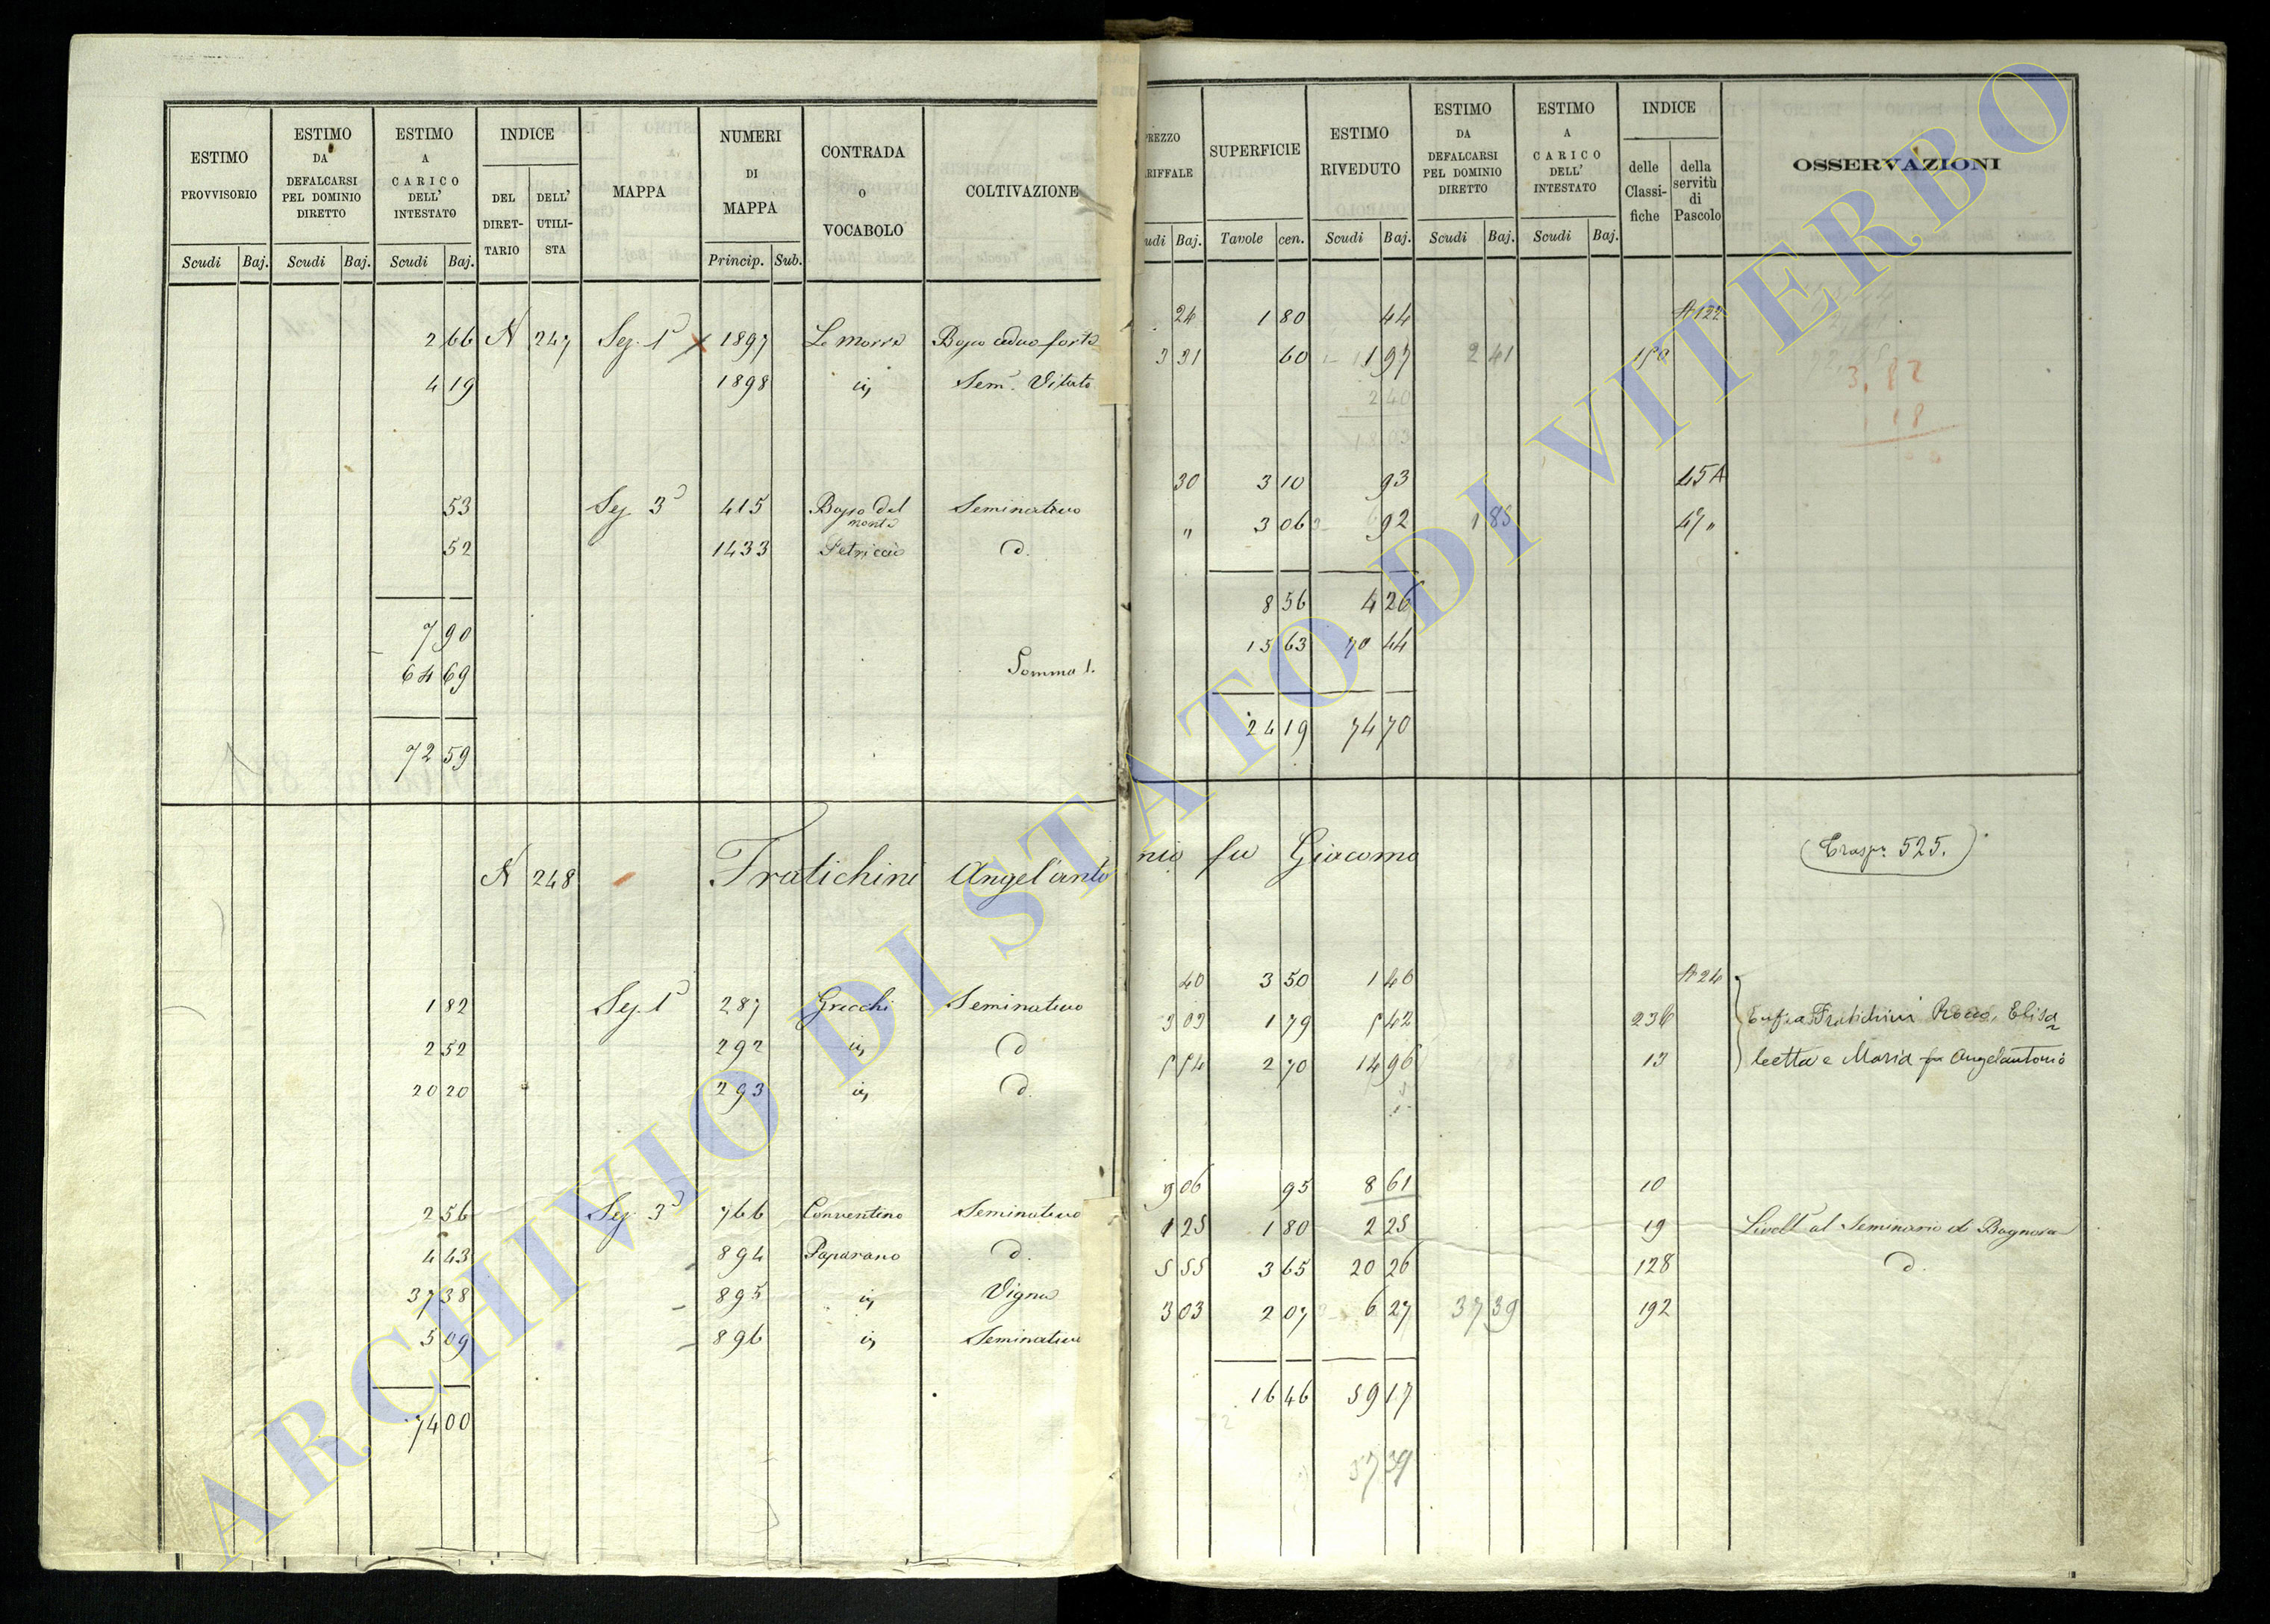 ESTIMO PROVVISORIO
ESTIMO DA DEFALCARSI PEL DOMINIO DIRETTO
ESTIMO A CARICO DELL' INTESTATO
INDICE
DEL DIRET-TARIO
DELL' UTILI-STA
MAPPA
NUMERI DI MAPPA
CONTRADA o VOCABOLO
COLTIVAZIONE
Scudi Baj. Scudi Baj. Scudi Baj. Princip. Sub.
2 66 N 247 Sez. 1ª 1897 Le Morre Bosco ceduo forte
4 19 1898 iv, Sem. Vitato
53 Sez 3ª 415 Bosco del monte Seminativo
52 1433 Petriccio d.
7 90
64 69 Somma 1.
72 59
N 248 Fratichini Angel'anto
1 82 Sez. 1ª 287 Grecchi Seminativo
2 52 292 iv, d
20 20 293 iv, d.
2 56 Sez. 3ª 766 Conventino Seminativo
4 43 894 Paparano d.
37 38 895 iv, Vigna
5 09 896 iv, Seminativo
74 00
PREZZO
ARIFFALE
SUPERFICIE
ESTIMO RIVEDUTO
ESTIMO DA DEFALCARSI PEL DOMINIO DIRETTO
ESTIMO A CARICO DELL' INTESTATO
INDICE
delle Classi-fiche
della servitù di Pascolo
OSSERVAZIONI
udi Baj. Tavole cen. Scudi Baj. Scudi Baj. Scudi Baj.
24 1 80 44 A 122
3 31 60 1 97 2 41 150
2 40
3,82
18
30 3 10 93 45 A
" 3 06 92 1 85 47 "
8 56 4 26
15 63 70 44
24 19 74 70
nio fu Giacomo (Trasp. 525.)
40 3 50 1 40 A 24
3 03 1 79 5 42 236 Fratichini Rocco, Elisa
5 54 2 70 14 96 13 betta e Maria fu Angelantonio
9 06 95 8 61 10
1 25 1 80 2 25 19 Livell° al Seminario di Bagnorea
5 55 3 65 20 26 128 d.
3 03 2 07 6 27 37 39 192
16 46 59 17
57 39
ARCHIVIO DI STATO DI VITERBO